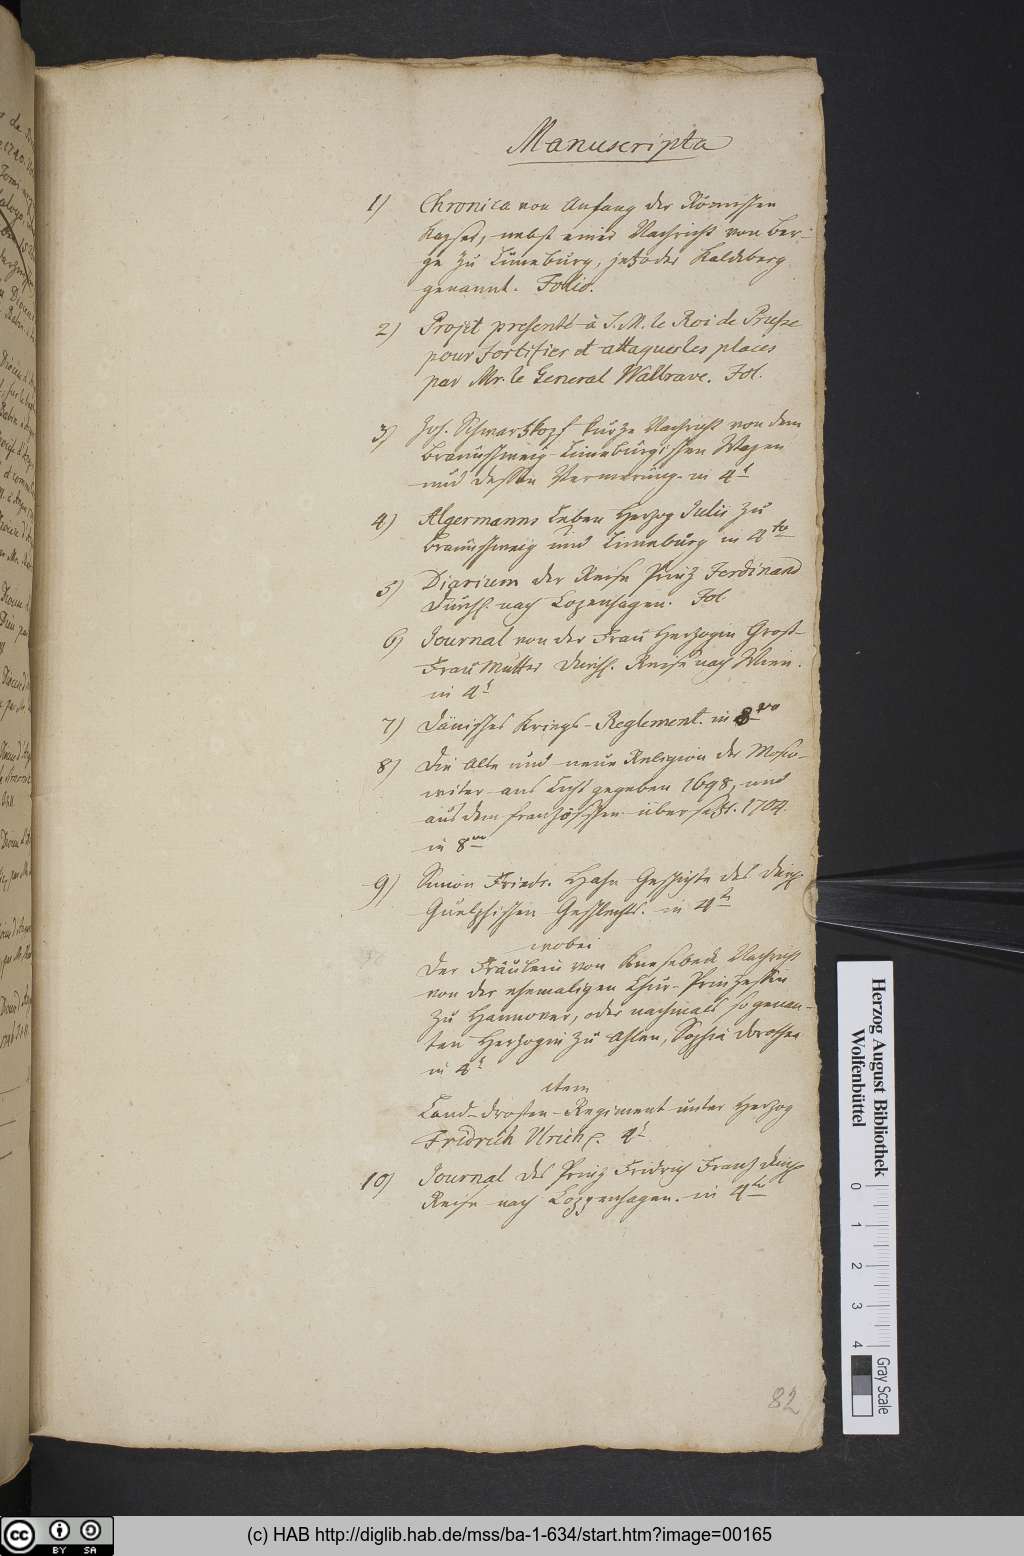 Manuscripta
1) Chronica von Anfang der Römischen
Kayser, nebst einer Nachricht von Ber-
ge zu Lüneburg, jetzo der Kalckberg
genannt. Folio.
2) Projet presenté à S. M. le Roi de Prusse
pour fortifier et attaquer les places
par Mr. le General Wallrave. Fol.
3) Joh. Schwartzkopf kurze Nachricht von dem
Braunschweig-Lüneburgischen Wapen
und dessen Vermerung in 4t
4) Algermanns Leben Herzog Julii zu
Braunschweig und Lüneburg in 4to
5) Diarium der Reise Prinz Ferdinand
Durchl. nach Copenhagen. Fol.
6) Journal von der Frau Herzogin Groß-
Frau Mutter Durchl. Reise nach Wien.
in 4t
7) Dänisches Kriegs-Reglement. in 8vo
8) Die Alte und neue Religion der Mosco-
witer ans Licht gegeben 1698, und
aus dem französischen übersetzt. 1704.
in 8vo
9) Simon Friedr. Hahn Geschichte des
Guelphischen Geschlechts. in 4to
wobei
Der Fräulein von Knesebeck Nachricht
von der ehemaligen Chur-Prinzessin
zu Hannover, oder nachmals sogenan-
ten Herzogin zu Ahlen, Sophia Dorothea
in 4t
item
Land-Drosten-Regiment unter Herzog
Fridrich Ulrich. 4t
10) Journal des Prinz Fridrich Franz Durchl.
Reise nach Coppenhagen. in 4to
82
Herzog August Bibliothek
Wolfenbüttel
0 1 2 3 4
Gray Scale
cc BY SA
(c) HAB http://diglib.hab.de/mss/ba-1-634/start.htm?image=00165